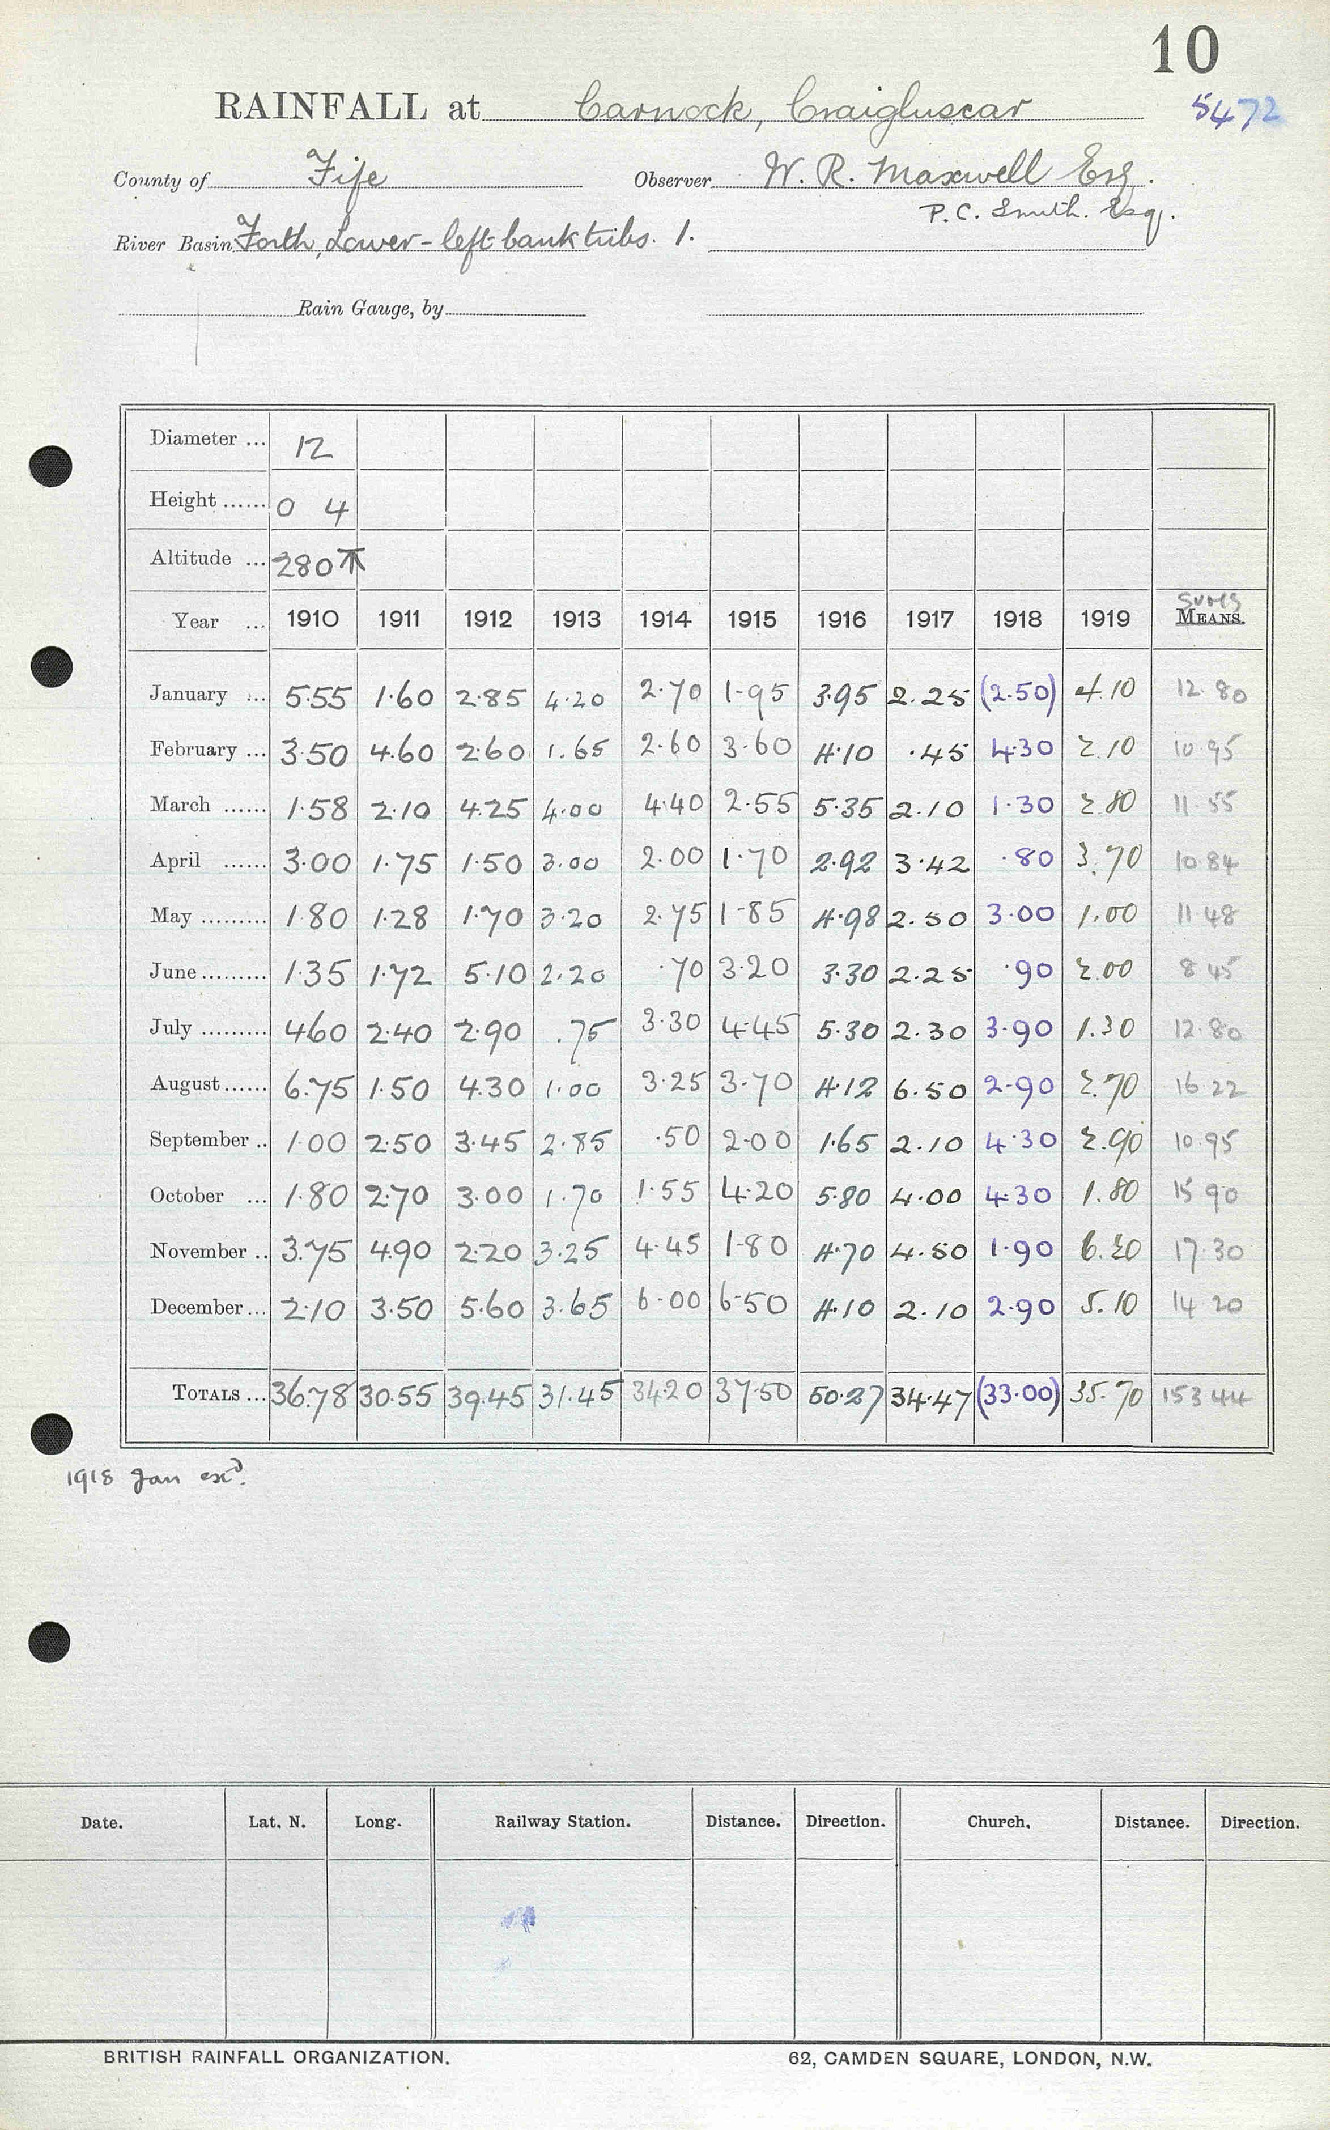 10
RAINFALL at Carnock, Craigluscar 5472
County of Fife Observer W. R. Maxwell Esq.
P. C. Smith. Esq.
River Basin Forth, Lower - left bank tribs. 1.
Rain Gauge, by
Diameter ... 12
Height ...... 0 4
Altitude ... 280
SUMS
Year ... 1910 1911 1912 1913 1914 1915 1916 1917 1918 1919 MEANS.
January ... 5.55 1.60 2.85 4.20 2.70 1.95 3.95 2.25 (2.50) 4.10 12.80
February ... 3.50 4.60 2.60 1.65 2.60 3.60 4.10 .45 4.30 2.10 10.95
March ...... 1.58 2.10 4.25 4.00 4.40 2.55 5.35 2.10 1.30 2.80 11 55
April ...... 3.00 1.75 1.50 3.00 2.00 1.70 2.92 3.42 .80 3.70 10.84
May ......... 1.80 1.28 1.70 3.20 2.75 1.85 4.98 2.50 3.00 1.00 11 48
June ......... 1.35 1.72 5.10 2.20 .70 3.20 3.30 2.25 .90 2.00 8 45
July ......... 4.60 2.40 2.90 .75 3.30 4.45 5.30 2.30 3.90 1.30 12.80
August ...... 6.75 1.50 4.30 1.00 3.25 3.70 4.12 6.50 2.90 2.70 16 22
September .. 1.00 2.50 3.45 2.85 .50 2.00 1.65 2.10 4.30 2.90 10.95
October ... 1.80 2.70 3.00 1.70 1.55 4.20 5.80 4.00 4.30 1.80 15 90
November .. 3.75 4.90 2.20 3.25 4.45 1.80 4.70 4.50 1.90 6.20 17.30
December ... 2.10 3.50 5.60 3.65 6.00 6.50 4.10 2.10 2.90 5.10 14 20
TOTALS ... 36.78 30.55 39.45 31.45 34.20 37.50 50.27 34.47 (33.00) 35.70 153 44
1918 Jan esd.
Date. Lat. N. Long. Railway Station. Distance. Direction. Church. Distance. Direction.
BRITISH RAINFALL ORGANIZATION. 62, CAMDEN SQUARE, LONDON, N.W.